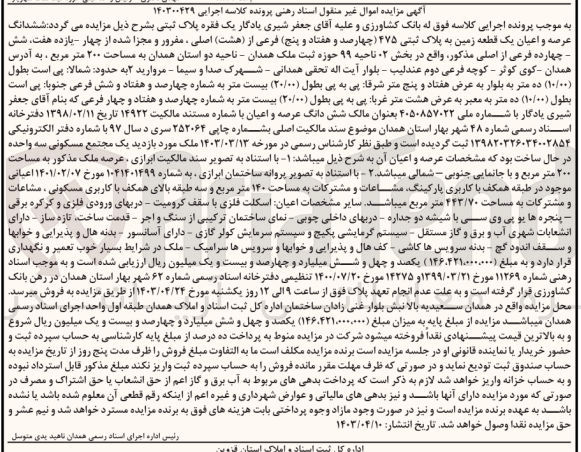 آگهی مزایده اموال غیر منقول اسناد رهنی پرونده کلاسه اجرایی ۱۴۰۳۰۰۴۲۹
به موجب پرونده اجرایی کلاسه فوق له بانک کشاورزی و علیه آقای جعفر شیری یادگار یک فقره پلاک ثبتی بشرح ذیل مزایده می گردد:ششدانگ
عرصه و اعیان یک قطعه زمین به پلاک ثبتی ۴۷۵ (چهارصد و هفتاد و پنج) فرعی از (هشت) اصلی ، مفروز و مجزا شده از چهار -یازده هفت، شش
- چهارده فرعی از اصلی مذکور، واقع در بخش ۰۲ ناحیه ۹۹ حوزه ثبت ملک همدان - ناحیه دو استان همدان به مساحت ۲۰۰ متر مربع ، به آدرس
همدان -کوی کوثر - کوچه فرعی دوم عندلیب - بلوار آیت اله تحقی همدانی - شـــهرک صدا و سیما - مروارید ۲به حدود: شمالا: پی است بطول
(۱۰/۰۰) ده متر به بلوار به عرض هفتاد و پنج متر شرقا: پی به پی بطول (۲۰/۰۰) بیست متر به شماره چهارصد و هفتاد و شش فرعی جنوبا: پی است
بطول (۱۰/۰۰) ده متر به معبر به عرض هشت متر غربا: پی به پی بطول (۲۰/۰۰) بیست متر به شماره چهارصد و هفتاد و چهار فرعی که بنام آقای جعفر
شیری یادگار با شـــماره ملی ۴۰۵۰۸۵۷۰۲۲ بعنوان مالک شش دانگ عرصه و اعیان با شماره مستند مالکیت ۱۴۹۲۲ تاریخ ۱۳۹۸/۰۲/۱۱ دفترخانه
اســـناد رسمی شماره ۴۸ شهر بهار استان همدان موضوع سند مالکیت اصلی بشـــماره چاپی ۲۵۲۰۶۴ سری د سال ۹۷ با شماره دفتر الکترونیکی
۱۳۹۸۲۰۳۲۶۰۳۴۰۰۲۸۵۴ ثبت گردیده است و طبق نظر کارشناس رسمی در مورخه ۱۴۰۳/۰۳/۱۳ ملک مورد بازدید یک مجتمع مسکونی سه واحده
در حال ساخت بود که مشخصات عرصه و اعیان آن به شرح ذیل میباشد: ۱- با استناد به تصویر سند مالکیت ابرازی ، عرصه ملک مذکور به مساحت
۲۰۰ متر مربع و با جانمایی جنوبی – شمالی میباشد. ۲ – با استناد به تصویر پروانه ساختمان ابرازی ، به شماره ۱۰۴۱۴۰۱۴۹۹ مورخ ۱۴۰۱/۰۲/۰۷ اعیانی
موجود در طبقه همکف با کاربری پارکینگ، مشـــاعات و مشترکات به مساحت ۱۴۰ متر مربع و سه طبقه بالای همکف با کاربری مسکونی ، مشاعات
و مشترکات به مساحت ۴۴۳/۷۰ متر مربع میباشـــد. سایر مشخصات اعیان: اسکلت فلزی با سقف کرومیت - دربهای ورودی فلزی و کرکره برقی
– پنجره ها یو پی وی ســـی با شیشه دو جداره - دربهای داخلی چوبی - نمای ساختمان ترکیبی از سنگ و آجر - قدمت ساخت، تازه ساز - دارای
انشعابات شهری آب و برق و گاز مستقل - سیستم گرمایشی پکیج و سیستم سرمایش کولر گازی - دارای آسانسور - بدنه هال و پذیرایی و خوابها
و سـقف اندود گچ - بدنه سرویس ها کاشی - کف هال و پذیرایی و خوابها و سرویس ها سرامیک - ملک در شرایط بسیار خوب تعمیر و نگهداری
قرار دارد و به مبلغ (۱۴۶.۴۲۱.۰۰۰.۰۰۰) یکصد و چهل و شـــش میلیارد و چهارصد و بیست و یک میلیون ریال ارزیابی شده است و به موجب اسناد
رهنی شماره ۱۱۳۶۹ مورخ ۱۳۹۹/۰۳/۲۱و ۱۴۲۷۵ مورخ ۱۴۰۰/۰۷/۲۰ تنظیمی دفترخانه اسناد رسمی شماره ۶۲ شهر بهار استان همدان در رهن بانک
کشاورزی قرار گرفته است و به علت عدم انجام تعهد پلاک فوق از ساعت ۹ الی ۱۲ روز یکشنبه مورخ ۱۴۰۳/۰۴/۲۴ از طریق مزایده به فروش میرسد.
محل مزایده واقع در همدان ـــ سعیدیه بالا نبش بلوار غنی زادان ساختمان اداره کل ثبت اسناد و املاک همدان طبقه اول واحد اجرای اسناد رسمی
همدان میباشـــد مزایده از مبلغ پایه به میزان مبلغ (۱۴۶.۴۲۱.۰۰۰.۰۰۰) یکصد و چهل و شش میلیارد و چهارصد و بیست و یک میلیون ریال شروع
و به بالاترین قیمت پیشـــنهادی نقداً فروخته میشود شرکت در مزایده منوط به پرداخت ده درصد از مبلغ پایه کارشناسی به حساب سپرده ثبت و
حضور خریدار یا نماینده قانونی او در جلسه مزایده است برنده مزایده مکلف است ما به التفاوت مبلغ فروش را ظرف مدت پنج روز از تاریخ مزایده به
حساب صندوق ثبت تودیع نماید و در صورتی که ظرف مهلت مقرر مانده فروش را به حساب سپرده ثبت واریز نکند مبلغ مذکور قابل استرداد نبوده
و به حساب خزانه واریز خواهد شد لازم به ذکر است که پرداخت بدهی های مربوط به آب برق و گاز اعم از حق انشعاب یا حق اشتراک و مصرف در
صورتی که مورد مزایده دارای آنها باشـــد و نیز بدهی های مالیاتی و عوارض شهرداری و غیره اعم از اینکه رقم قطعی آن معلوم شده باشد یا نشده
باشـــد به عهده برنده مزایده است و نیز در صورت وجود مازاد وجوه پرداختی بابت هزینه های فوق به برنده مزایده مسترد خواهد شد و نیم عشر و
حق مزایده نقدا وصول خواهد شد. تاریخ انتشار: ۱۴۰۳/۰۴/۱۰
رئیس اداره اجرای اسناد رسمی همدان ناهید یدی متوسل
اداره کل ثبت اسناد و املاک استان قزوین